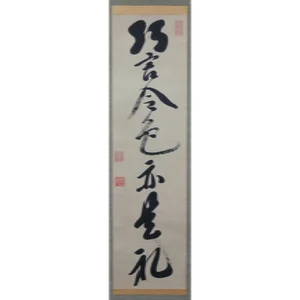 巧言令色亦是礼